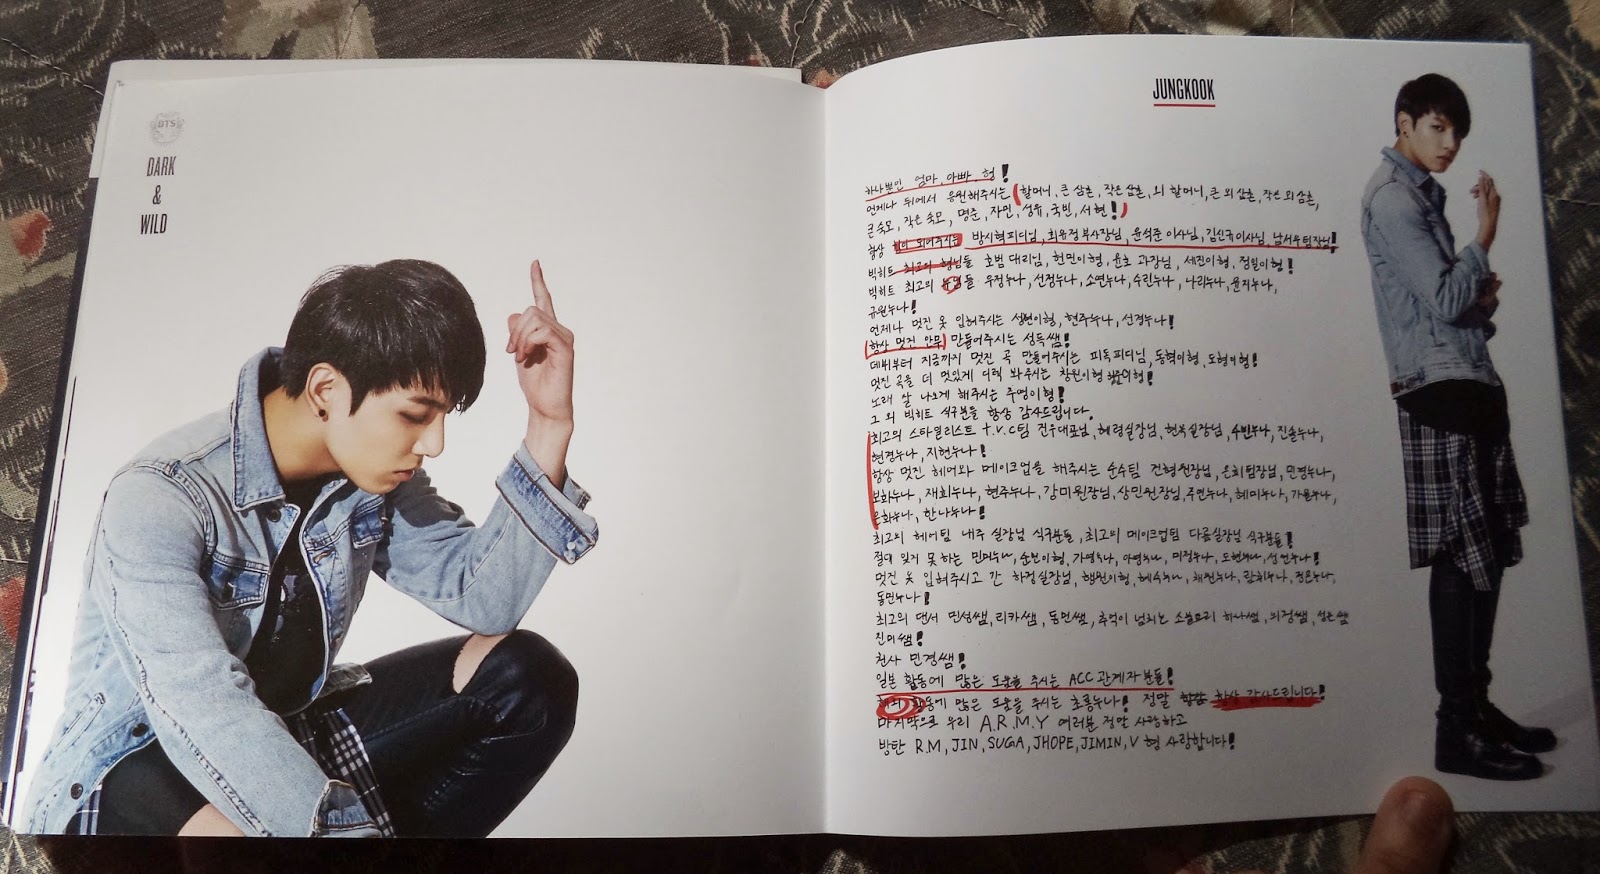 BTS
DARK
&
WILD
JUNGKOOK
하나뿐인 엄마, 아빠, 형!
언제나 뒤에서 응원해주시는 (할머니, 큰 삼촌, 작은 삼촌, 외 할머니, 큰 외 삼촌, 작은 외 삼촌,
큰 숙모, 작은 숙모, 명준, 자민, 성유, 국빈, 서현!)
항상 힘이 되어주시는 방시혁피디님, 최유정부사장님, 윤석준 이사님, 김신규이사님, 남서우팀장님!
빅히트 최고의 형님들 호범 대리님, 현민이형, 윤호 과장님, 세진이형, 정일이형!
빅히트 최고의 누님들 우정누나, 선정누나, 소연누나, 수린누나, 나리누나, 윤지누나,
규원누나!
언제나 멋진 옷 입혀주시는 성현이형, 현주누나, 선경누나!
항상 멋진 안무 만들어주시는 성득쌤!
데뷔부터 지금까지 멋진 곡 만들어주시는 피독피디님, 동혁이형, 도형이형!
멋진 곡을 더 멋있게 디렉 봐주시는 창원이형
노래 잘 나오게 해주시는 주영이형!
그 외 빅히트 식구분들 항상 감사드립니다.
최고의 스타일리스트 t.v.c팀 건우대표님, 혜령실장님, 현욱실장님, 수빈누나, 진솔누나,
현경누나, 지현누나!
항상 멋진 헤어와 메이크업을 해주시는 순수팀 건형원장님, 은희팀장님, 민경누나,
보화누나, 재희누나, 현주누나, 감미원장님, 상민원장님, 주연누나, 혜미누나, 가을누나,
은화누나, 한나누나!
최고의 헤어팀 내주 실장님 식구분들, 최고의 메이크업팀 다름실장님 식구분들!
절대 잊지 못 하는 민혜누나, 순본이형, 가영누나, 아영누나, 미정누나, 도현누나,
멋진 옷 입혀주시고 간 하정실장님,
동민누나!
최고의 댄서 민성쌤, 리카쌤, 동민쌤, 추억이 넘치는
진미쌤!
천사 민경쌤!
일본 활동에 많은 도움을 주시는 ACC 관계자분들!
해외 활동에 많은 도움을 주시는 초롱누나! 정말 항상 감사드립니다!
마지막으로 우리 A.R.M.Y 여러분 정말 사랑하고
방탄 R.M, JIN, SUGA, JHOPE, JIMIN, V 형 사랑합니다!